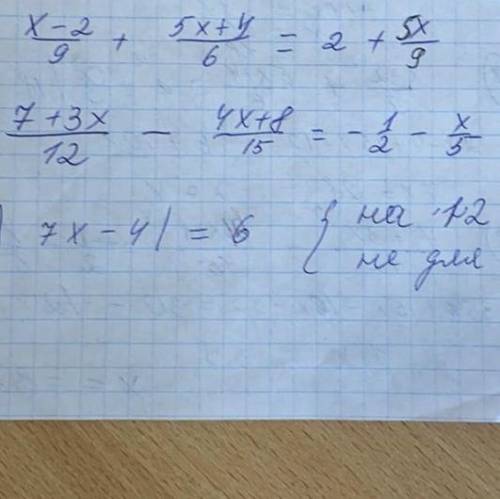 x-2/9 + 5x+4/6 = 2 + 5x/9
7+3x/12 - 4x+8/15 = -1/2 - x/5
|7x-4|=6 { на 12
не для